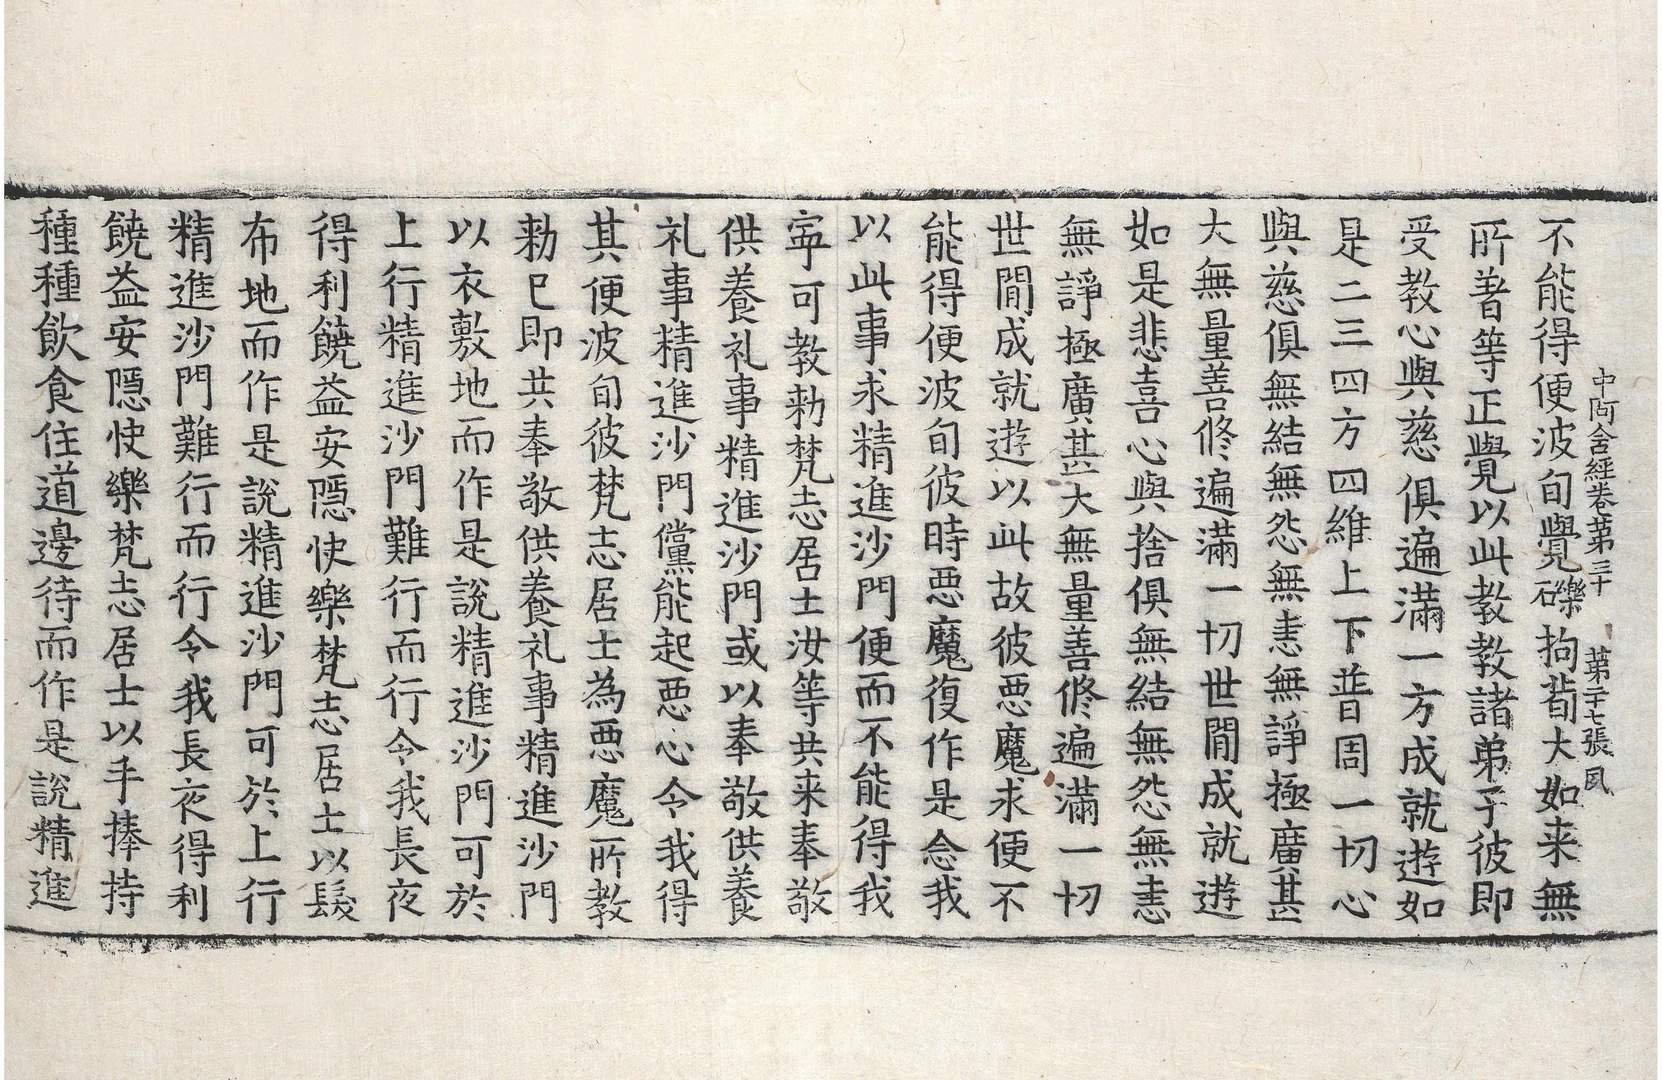 中阿含經卷第三十　第二十七張　風
不能得便波旬覺礫拘荀大如来無
所著等正覺以此教教諸弟子彼即
受教心與慈俱遍滿一方成就遊如
是二三四方四維上下普周一切心
與慈俱無結無怨無恚無諍極廣甚
大無量善修遍滿一切世間成就遊
如是悲喜心與捨俱無結無怨無恚
無諍極廣甚大無量善修遍滿一切
世間成就遊以此故彼惡魔求便不
能得便波旬彼時惡魔復作是念我
以此事求精進沙門便而不能得我
寧可教勑梵志居士汝等共来奉敬
供養礼事精進沙門或以奉敬供養
礼事精進沙門儻能起惡心令我得
其便波旬彼梵志居士為惡魔所教
勑已即共奉敬供養礼事精進沙門
以衣敷地而作是說精進沙門可於
上行精進沙門難行而行令我長夜
得利饒益安隱快樂梵志居士以髮
布地而作是說精進沙門可於上行
精進沙門難行而行令我長夜得利
饒益安隱快樂梵志居士以手捧持
種種飲食住道邊待而作是說精進